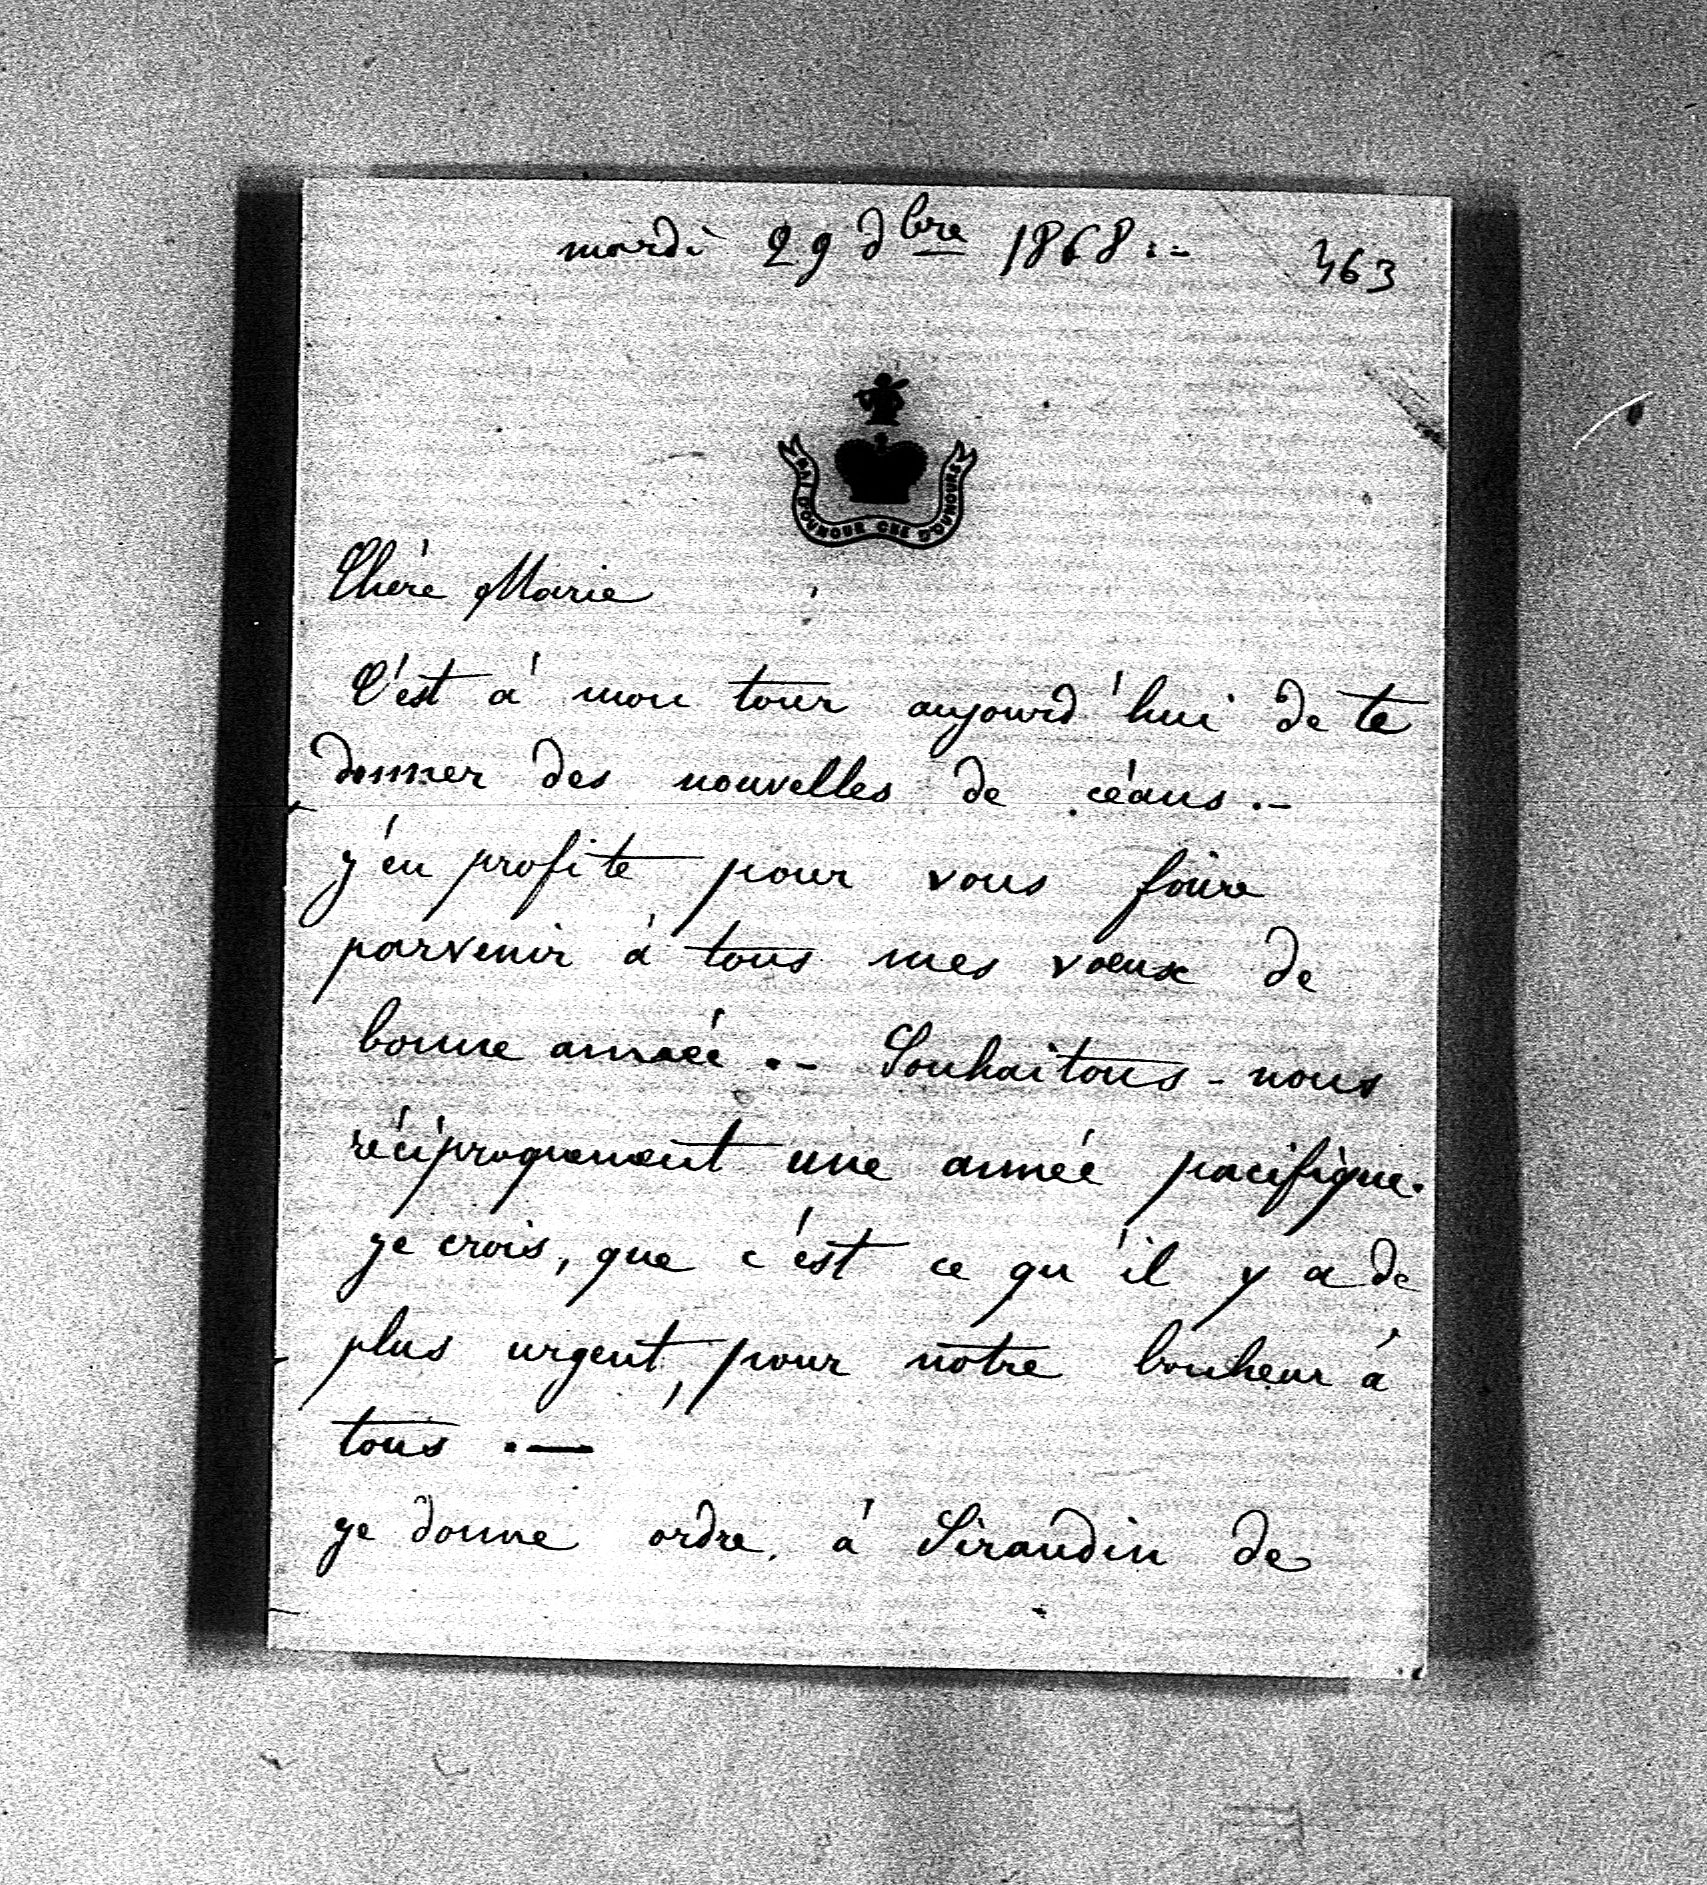 mardi 29 dbre 1868.- 463
PAI D'OUNOUR CHE D'OUNOURS
Chère Marie
C'est à mon tour aujourd'hui de te
donner des nouvelles de céans.-
j'en profite pour vous faire
parvenir à tous mes voeux de
bonne année.- Souhaitons-nous
réciproquement une année pacifique.
je crois, que c'est ce qu'il y a de
plus urgent, pour notre bonheur à
tous.—
je donne ordre, à Siraudin de